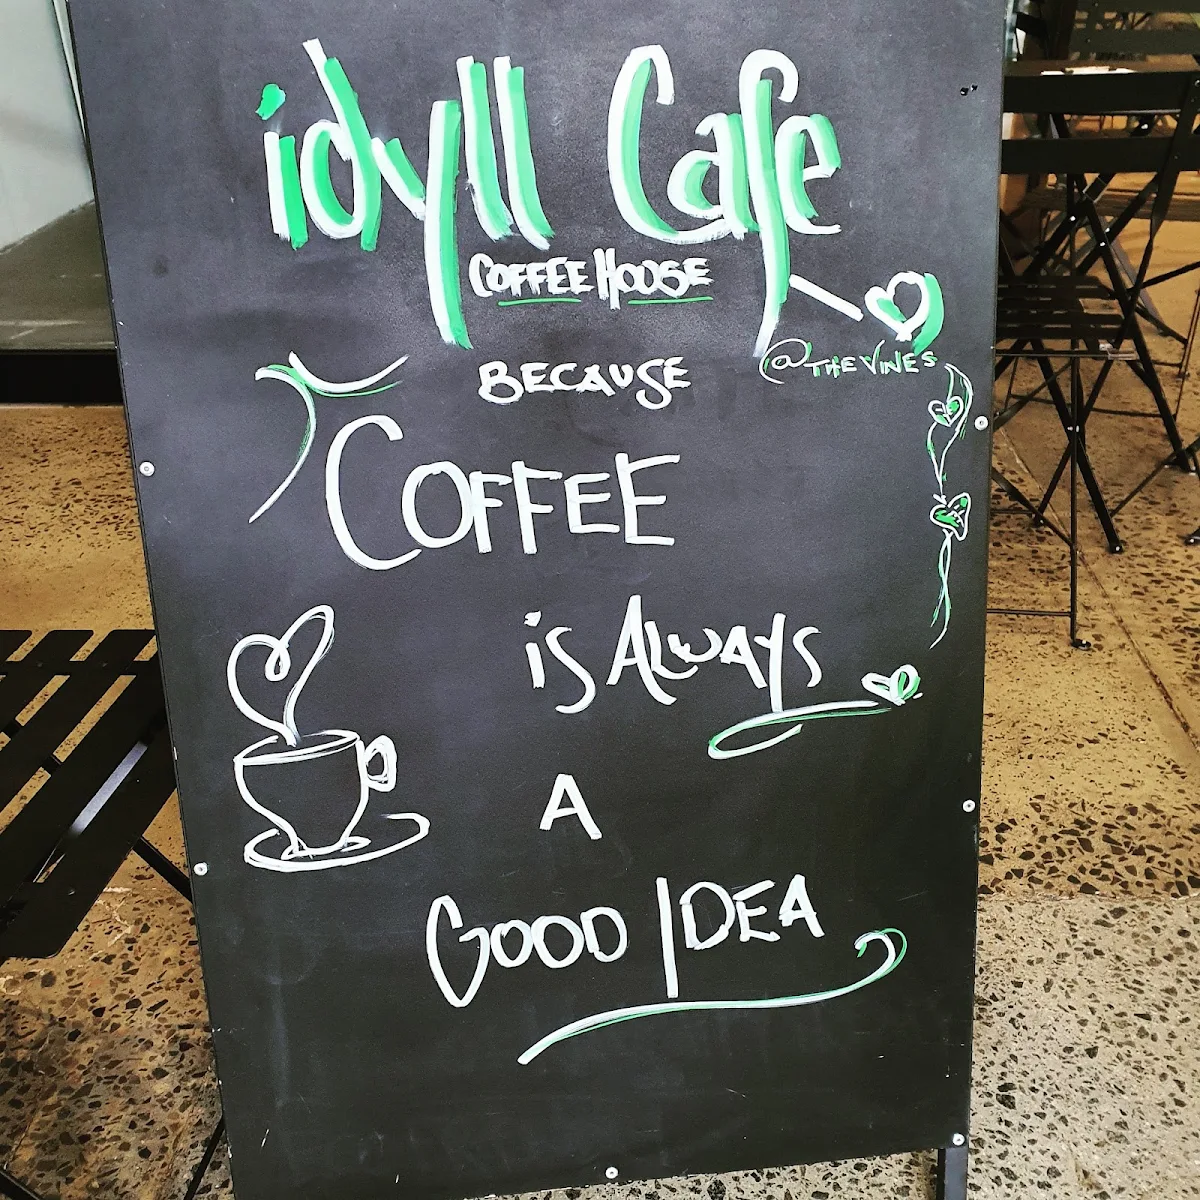 idyll Cafe
COFFEE HOUSE
@THE VINES
BECAUSE
COFFEE
is ALWAYS
A
GOOD IDEA